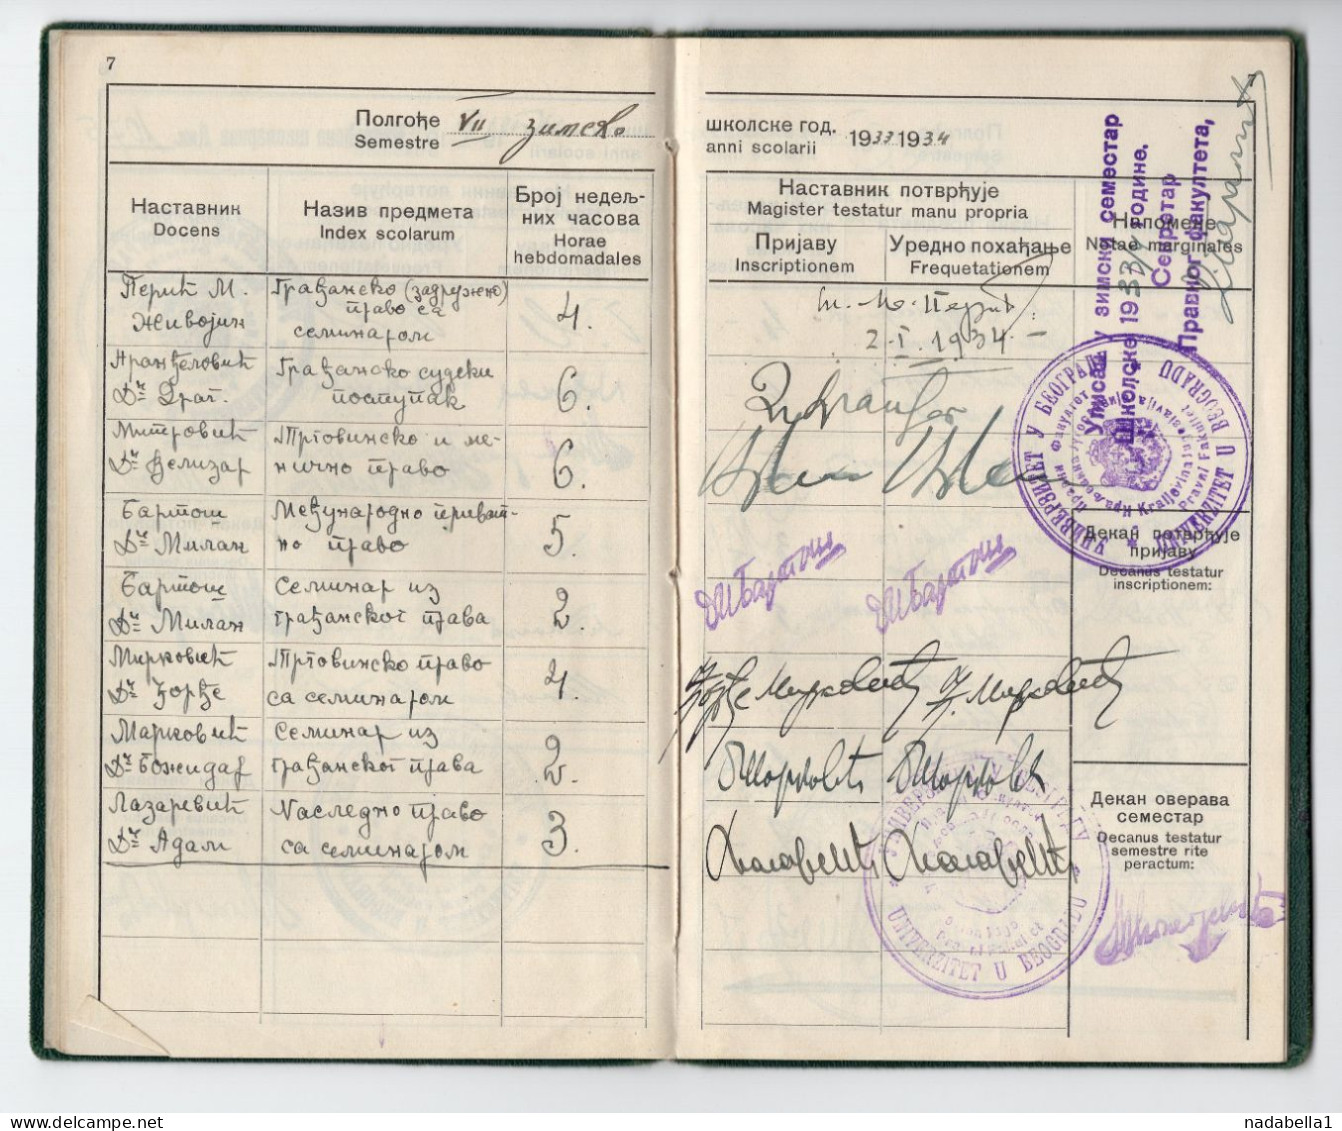 7
Полгође VII зимско
Semestre
Наставник
Docens
Назив предмета
Index scolarum
Број недељ-
них часова
Horae
hebdomadales
Перић М.
Живојин
Грађанско (задружно)
право са
семинаром
4.
Аранђеловић
Др Драг.
Грађанско судски
поступак
6.
Митровић
Др Велизар
Трговинско и ме-
нично право
6.
Бартош
Др Милан
Међународно приват-
но право
5.
Бартош
Др Милан
Семинар из
грађанског права
2.
Мирковић
Др Ђорђе
Трговинско право
са семинаром
4.
Марковић
Др Божидар
Семинар из
грађанског права
2.
Лазаревић
Др Адам
Наследно право
са семинаром
3.
7
школске год. 1933 1934
anni scolarii
Наставник потврђује
Magister testatur manu propria
Пријаву
Inscriptionem
Уредно похађање
Frequetationem
Напомене
Notae marginales
Уписан у зимски семестар
Школске 1933/4 године.
Секретар
Правног факултета,
Перић
2-I 1934-
М Бартош
М Бартош
Ђорђе Мирковић
Ђ. Мирковић
УНИВЕРЗИТЕТ У БЕОГРАДУ
UNIVERZITET U BEOGRADU
Правни Факултет
Pravni Fakultet
Декан потврђује
пријаву
Decanus testatur
inscriptionem:
Декан оверава
семестар
Decanus testatur
semestre rite
peractum:
UNIVERZITET U BEOGRADU
nadabella1